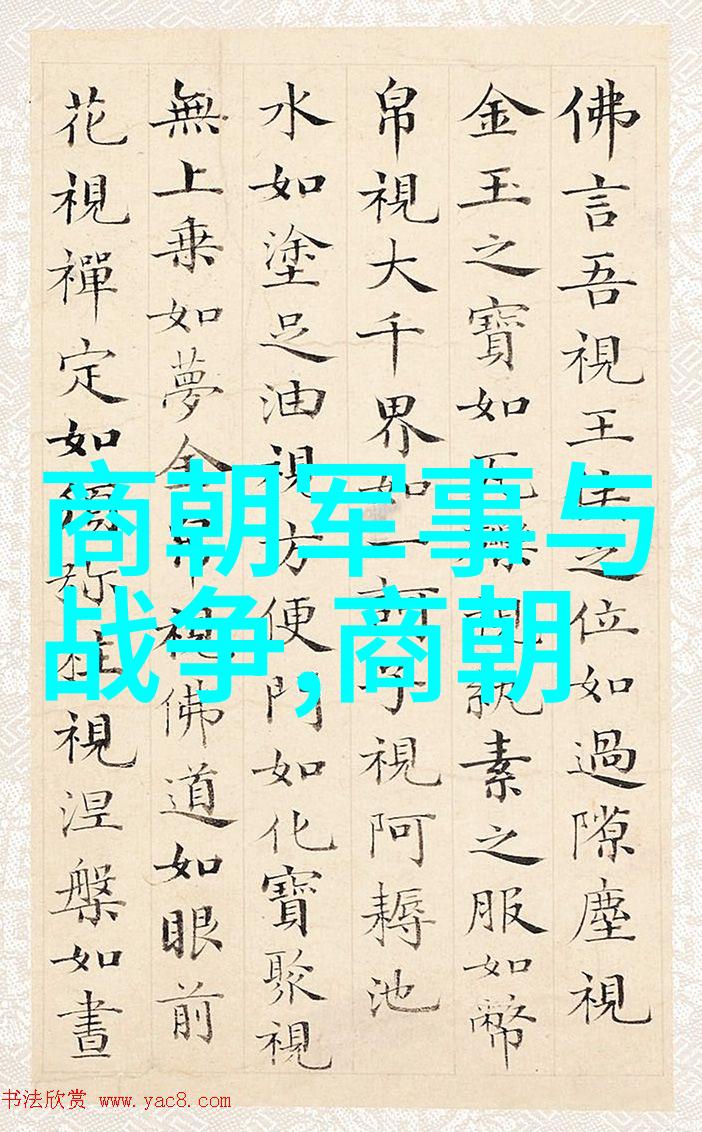 佛言吾視王侯之位如過隙塵視
金玉之寶如瓦礫視紈素之服如幣
帛視大千界如一訶子視阿耨池
水如塗足油視方便門如化寶聚視
無上乗如夢金帛視佛道如眼前
花視禪定如須弥柱視涅槃如晝
商朝军事与
战争,商朝
书法欣赏 www.yac8.com